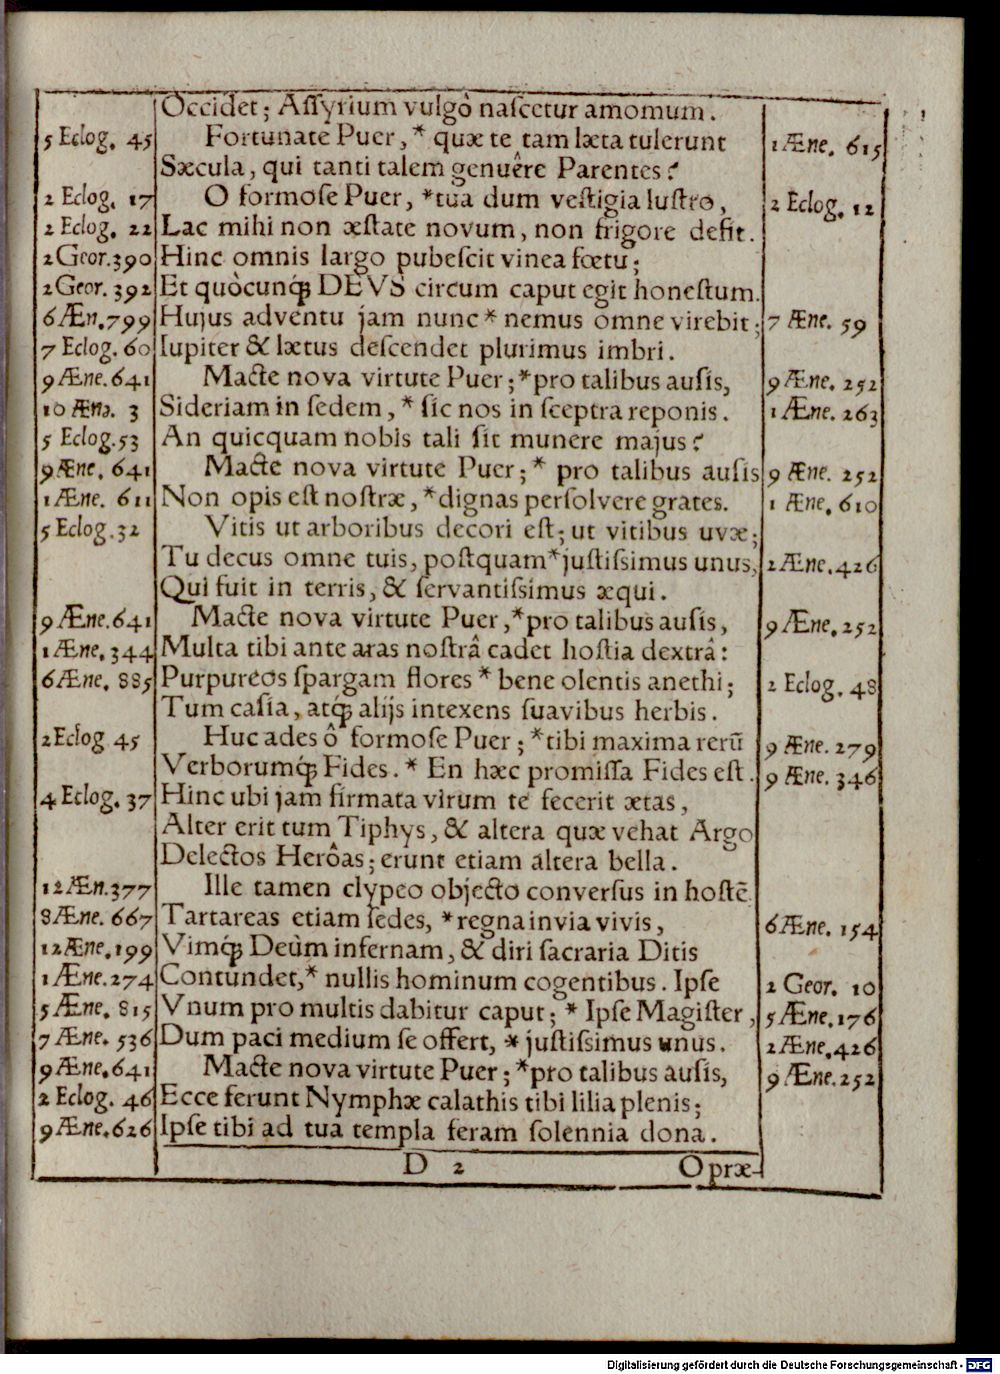 Occidet; Aſſyrium vulgò naſcetur amomum.
5 Eclog. 45 Fortunate Puer, * quæ te tam læta tulerunt 1 Æne. 615
Sæcula, qui tanti talem genuêre Parentes?
2 Eclog. 17 O formoſe Puer, *tua dum veſtigia luſtro, 2 Eclog. 12
2 Eclog. 22 Lac mihi non æſtate novum, non frigore defit.
2 Geor. 390 Hinc omnis largo pubeſcit vinea fœtu;
2 Geor. 392 Et quòcunq́; DEVS circum caput egit honeſtum.
6 Æn. 799 Hujus adventu jam nunc * nemus omne virebit; 7 Æne. 59
7 Eclog. 60 Iupiter & lætus deſcendet plurimus imbri.
9 Æne. 641 Macte nova virtute Puer; *pro talibus auſis, 9 Æne. 252
10 Æne. 3 Sideriam in ſedem, * ſic nos in ſceptra reponis. 1 Æne. 263
5 Eclog. 53 An quicquam nobis tali ſit munere majus?
9 Æne. 641 Macte nova virtute Puer; * pro talibus auſis 9 Æne. 252
1 Æne. 611 Non opis eſt noſtræ, *dignas perſolvere grates. 1 Æne. 610
5 Eclog. 32 Vitis ut arboribus decori eſt; ut vitibus uvæ;
Tu decus omne tuis, poſtquam *juſtiſsimus unus, 2 Æne. 426
Qui fuit in terris, & ſervantiſsimus æqui.
9 Æne. 641 Macte nova virtute Puer, *pro talibus auſis, 9 Æne. 252
1 Æne. 344 Multa tibi ante aras noſtrâ cadet hoſtia dextrâ:
6 Æne. 885 Purpureos ſpargam flores * bene olentis anethi; 2 Eclog. 48
Tum caſia, atq́; alijs intexens ſuavibus herbis.
2 Eclog 45 Huc ades ô formoſe Puer; *tibi maxima rerū 9 Æne. 279
Verborumq́; Fides. * En hæc promiſſa Fides eſt. 9 Æne. 346
4 Eclog. 37 Hinc ubi jam firmata virum te fecerit ætas,
Alter erit tum Tiphys, & altera quæ vehat Argo
Delectos Herôas; erunt etiam altera bella.
12 Æn. 377 Ille tamen clypeo objecto converſus in hoſtē
8 Æne. 667 Tartareas etiam ſedes, *regna invia vivis, 6 Æne. 154
12 Æne. 199 Vimq́; Deûm infernam, & diri ſacraria Ditis
1 Æne. 274 Contundet,* nullis hominum cogentibus. Ipſe 2 Geor. 10
5 Æne. 815 Vnum pro multis dabitur caput; * Ipſe Magiſter, 5 Æne. 176
7 Æne. 536 Dum paci medium ſe offert, * juſtiſsimus unus. 2 Æne. 426
9 Æne. 641 Macte nova virtute Puer; *pro talibus auſis, 9 Æne. 252
2 Eclog. 46 Ecce ferunt Nymphæ calathis tibi lilia plenis;
9 Æne. 626 Ipſe tibi ad tua templa feram ſolennia dona.
D 2 O præ-
Digitalisierung gefördert durch die Deutsche Forschungsgemeinschaft - DFG